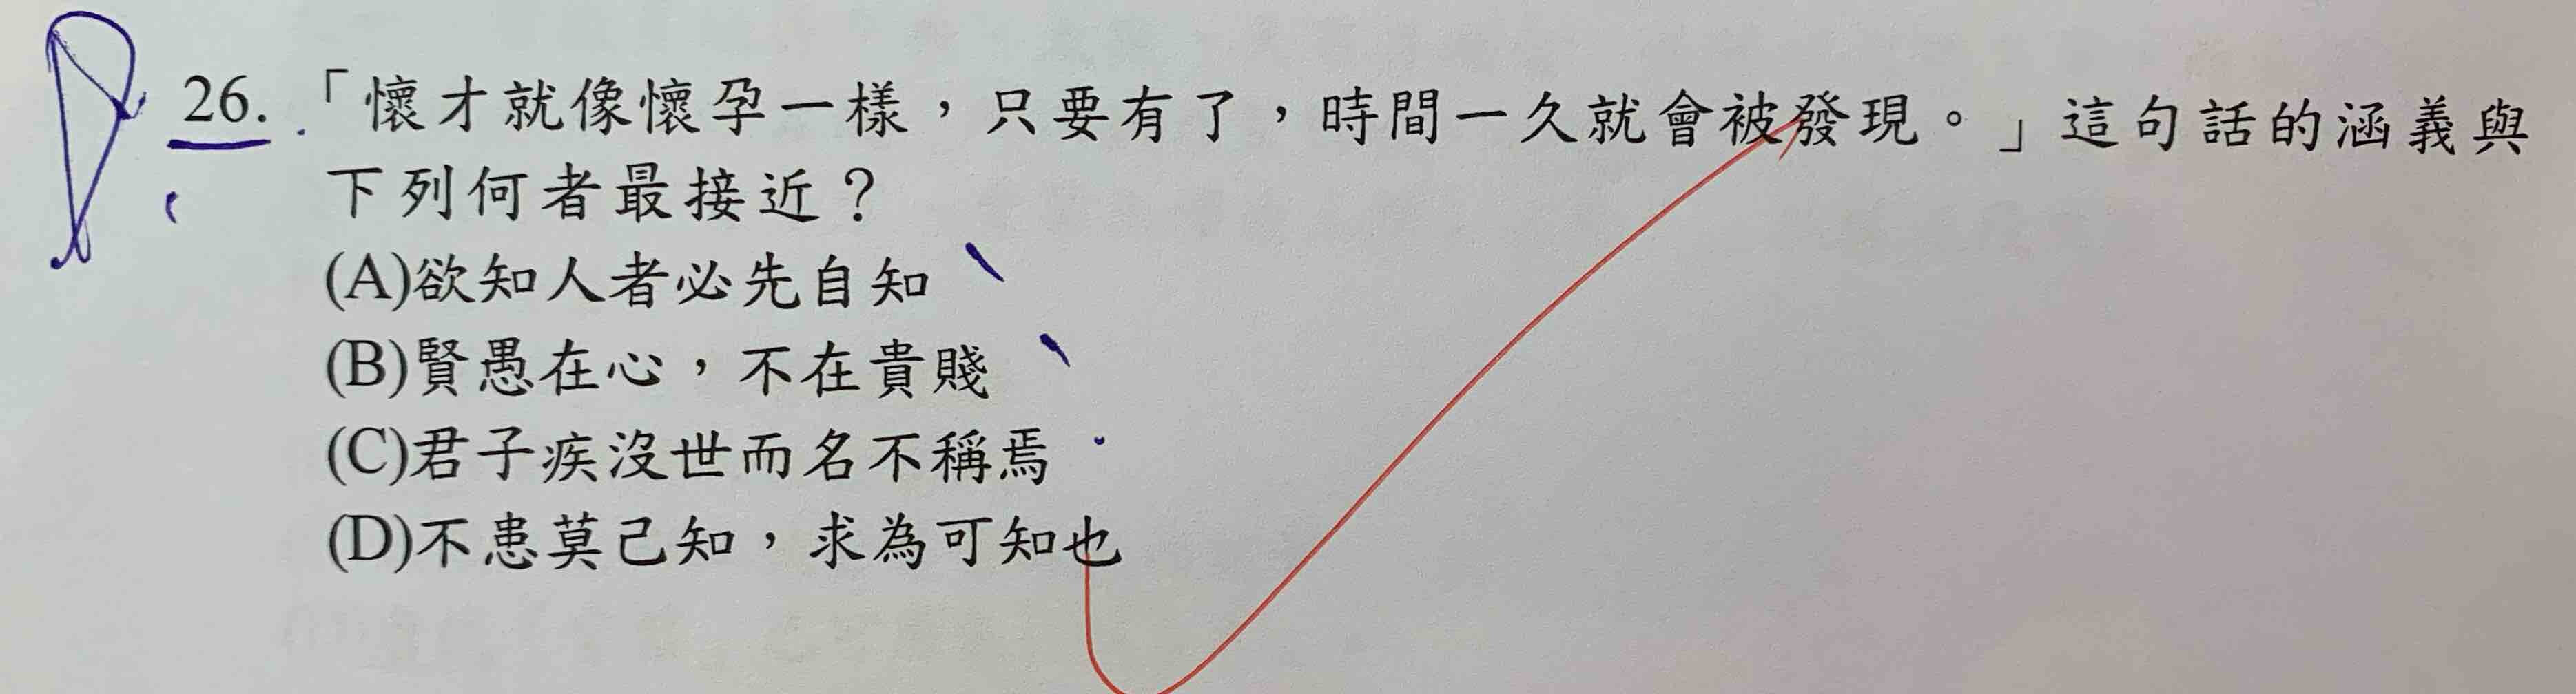 26.「懷才就像懷孕一樣，只要有了，時間一久就會被發現。」這句話的涵義與
下列何者最接近？
(A)欲知人者必先自知
(B)賢愚在心，不在貴賤
(C)君子疾沒世而名不稱焉
(D)不患莫己知，求為可知也